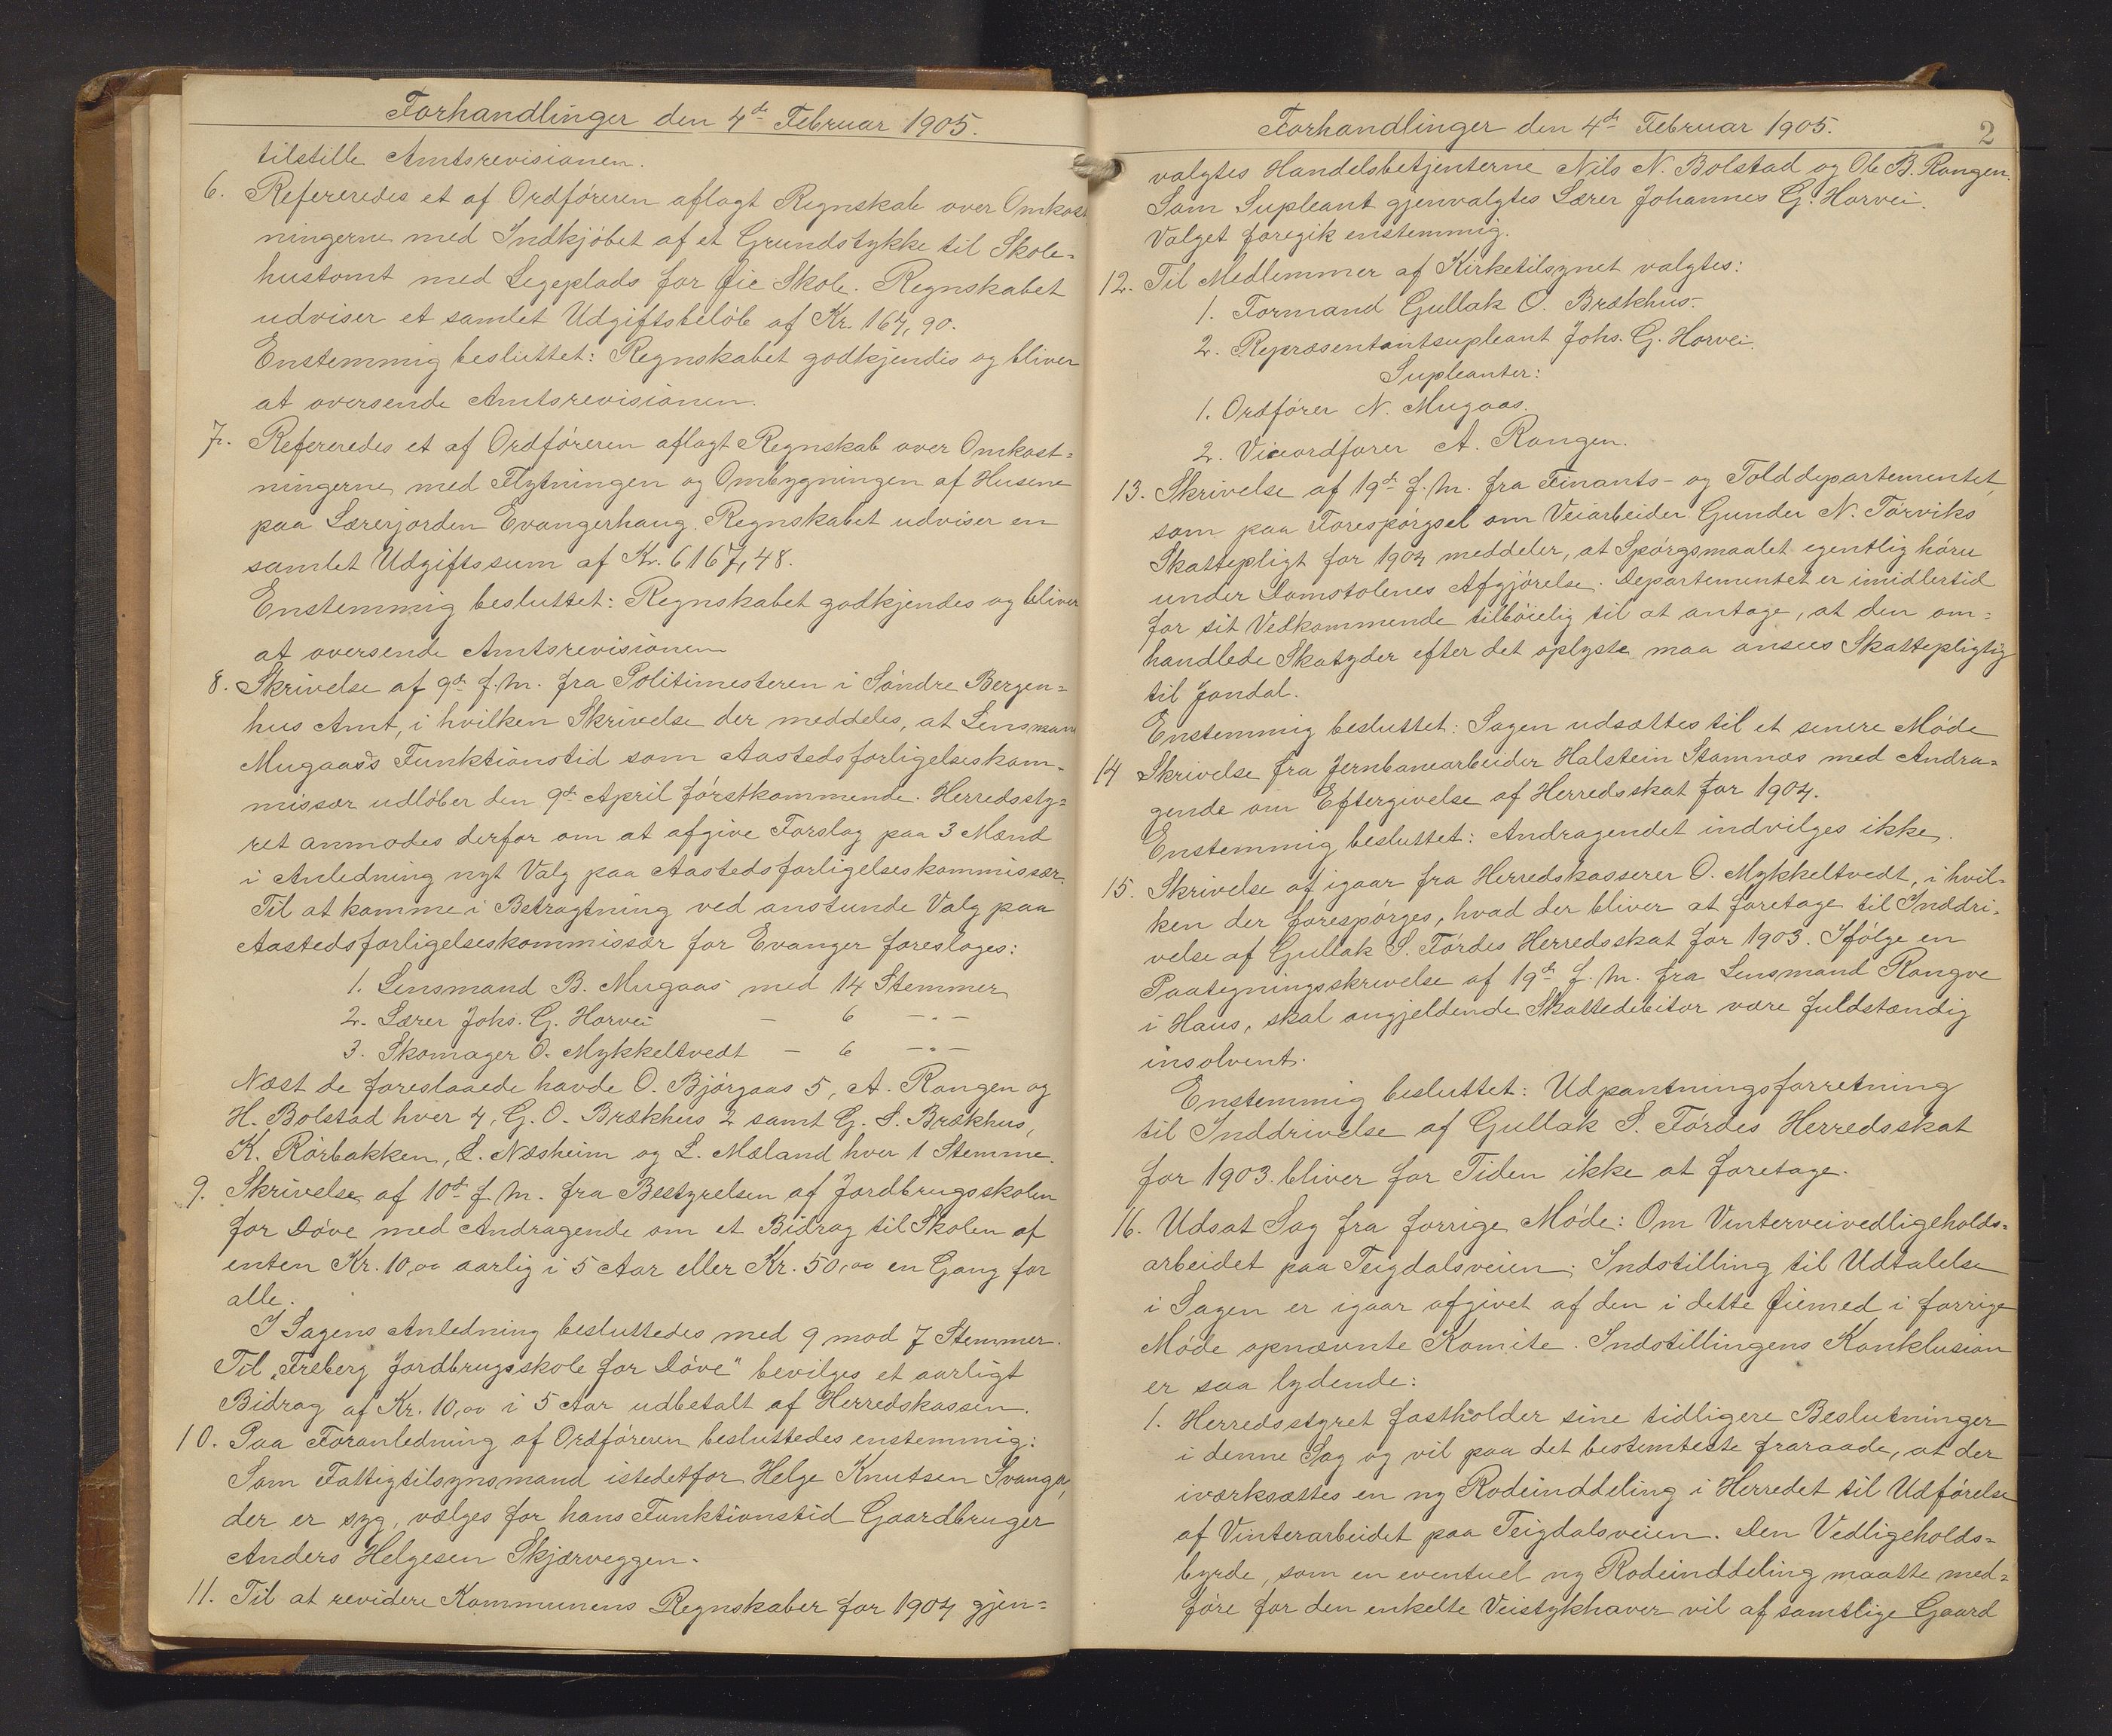 Forhandlinger den 4de Februar 1905.
tilstille Amtsrevisionen.
6. Refereredes et af Ordføreren aflagt Regnskab over Omkost
ningerne med Indkjøbet af et Grundstykke til Skole=
hustomt med Legeplads for Øie Skole. Regnskabet
udviser et samlet Udgiftsbeløb af Kr. 164,90.
Enstemmig besluttet: Regnskabet godkjendis og bliver
at oversende Amtsrevisionen.
7. Refereredes et af Ordføreren aflagt Regnskab over Omkost=
ningerne med Flytningen og Ombygningen af Husene
paa Lærerjorden Evangerhaug. Regnskabet udviser en
samlet Udgiftssum af Kr. 6167,48.
Enstemmig besluttet: Regnskabet godkjendes og bliver
at oversende Amtsrevisionen
8. Skrivelse af 9de f. M. fra Politimesteren i Søndre Bergen=
hus Amt, i hvilken Skrivelse der meddeles, at Lensmann
Mugaas's Funktionstid som Aastedsforligelseskom=
missær udløber den 9de April førstkommende. Herredssty=
ret anmodes derfor om at afgive Forslag paa 3 Mænd
i Anledning nyt Valg paa Aastedsforligelseskommissær.
Til at komme i Betragtning ved anstunde Valg paa
Aastedsforligelseskommissær for Evanger foreslages:
1. Lensmand B. Mugaas med 14 Stemmer
2. Lærer Johs. G. Horvei – 6 –"–
3. Skomager O. Mykkeltvedt – 6 –"–
Næst de foreslaaede havde O. Bjørgaas 5, A. Rangen og
H. Bolstad hver 4, G. O. Brækhus 2 samt G. S. Brækhus,
K. Rørbakken, L. Næsheim og L. Mæland hver 1 Stemme.
9. Skrivelse af 10de f. M. fra Bestyrelsen af Jordbrugsskolen
for Døve med Andragende om et Bidrag til Skolen af
enten Kr. 10,00 aarlig i 5 Aar eller Kr. 50,00 en Gang for
alle.
I Sagens Anledning besluttedes med 9 mod 7 Stemmer.
Til „Freberg Jordbrugsskole for Døve" bevilges et aarligt
Bidrag af Kr. 10,00 i 5 Aar udbetalt af Herredskassen.
10. Paa Foranledning af Ordføreren besluttedes enstemmig:
Som Fattigtilsynsmand istedetfor Helge Knutsen
der er syg, vælges for hans Funktionstid Gaardbruger
Anders Helgesen Skjærveggen.
11. Til at revidere Kommunens Regnskaber for 1904 gjen=
Forhandlinger den 4de Februar 1905.
2
valgtes Handelsbetjenterne Nils N. Bolstad og Ole B. Rangen.
Som Supleant gjenvalgtes Lærer Johannes G. Horvei.
Valget foregik enstemmig.
12. Til Medlemmer af Kirketilsynet valgtes:
1. Formand Gullak O. Brækhus.
2. Repræsentantsupleant Johs. G. Horvei.
Supleanter:
1. Ordfører N. Mugaas.
2. Viceordfører A. Rangen.
13. Skrivelse af 19de f. M. fra Finants- og Tolddepartementet,
som paa Forespørgsel om Veiarbeider Gunder N. Torviks
Skattepligt for 1904 meddeler, at Spørgsmaalet egentlig høru
under Domstolenes Afgjørelse. Departementet er imidlertid
for sit Vedkommende tilbøielig til at antage, at den om=
handlede Skatyder efter det oplyste maa ansees Skattepligtig
til Jondal.
Enstemmig besluttet: Sagen udsættes til et senere Møde
14 Skrivelse fra Jernbanearbeider Halstein Stamnæs med Andra=
gende om Eftergivelse af Herredsskat for 1904.
Enstemmig besluttet: Andragendet indvilges ikke.
15. Skrivelse af igaar fra Herredskasserer O. Mykkeltvedt, i hvil=
ken der forespørges, hvad der bliver at foretage til Inddri=
velse af Gullak S. Førdes Herredsskat for 1903. Ifølge en
Paategningsskrivelse af 19de f. M. fra Lensmand Rongve
i Haus, skal angjeldende Skattedebitor være fuldstændig
insolvent.
Enstemmig besluttet: Udpantningsforretning
til Inddrivelse af Gullak S. Førdes Herredsskat
for 1903. bliver for Tiden ikke at foretage.
16. Udsat Sag fra forrige Møde: Om Vinterveivedligeholds=
arbeidet paa Teigdalsveien. Indstilling til Udtalelse
i Sagen er igaar afgivet af den i dette Øiemed i forrige
Møde opnævnte Komite. Indstillingens Konklusion
er saa lydende:
1. Herredsstyret fastholder sine tidligere Beslutninger
i denne Sag og vil paa det bestemteste fraraade, at der
iværksættes en ny Rodeinddeling i Herredet til Udførelse
af Vinterarbeidet paa Teigdalsveien. Den Vedligeholds=
byrde, som en eventuel ny Rodeinddeling maatte med=
føre for den enkelte Veistykhaver vil af samtlige Gaard